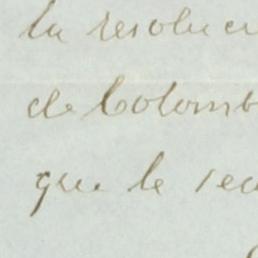 la resoluci
de Colomb
que le rec